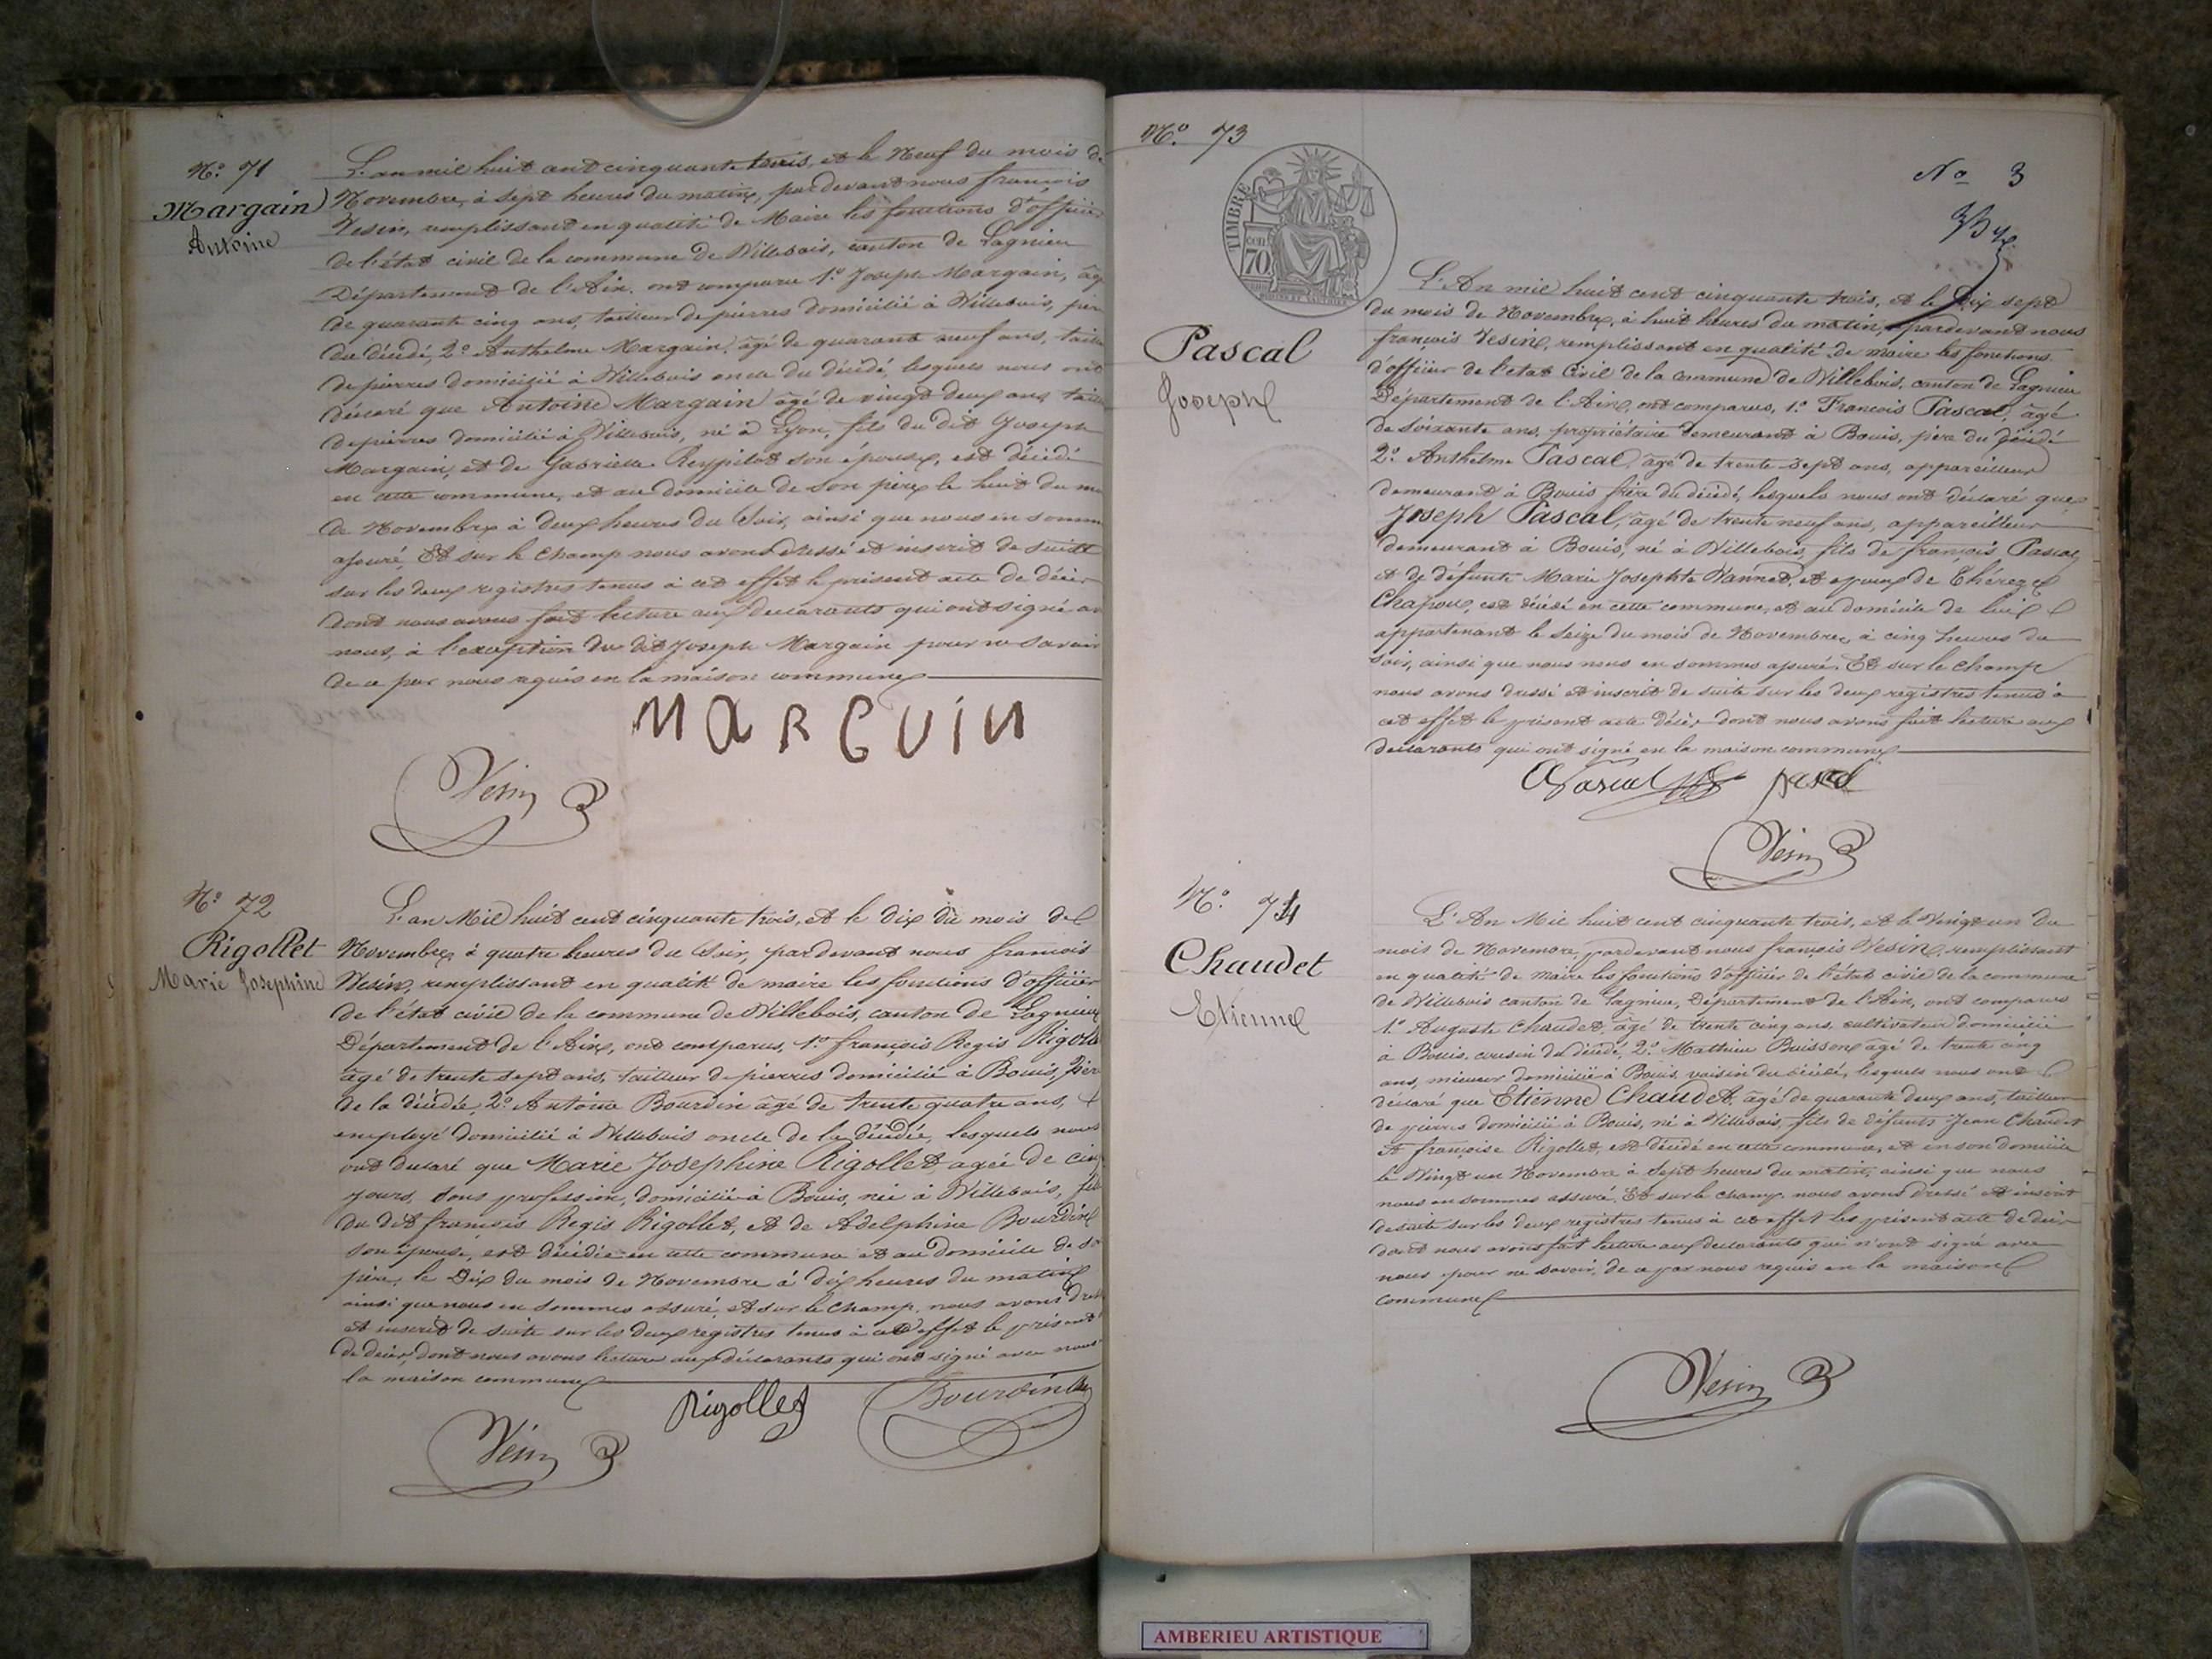 N.° 71
Margain
Antoine
L'an mil huit cent cinquante trois, et le Neuf du mois de
Novembre, à sept heures du matin, pardevant nous françois
Vesin, remplissant en qualité de Maire les fonctions d'officier
de l'état civil de la commune de Villebois, canton de Lagnieu
Département de l'Ain. ont comparu 1.° Joseph Margain, âgé
de quarante cinq ans, tailleur de pierres domicilié à Villebois, père
du décédé, 2.° Anthelme Margain, âgé de quarante neuf ans, taill
de pierres domicilié à Villebois oncle du décédé, lesquels nous ont
déclaré que Antoine Margain âgé de vingt deux ans taill
de pierres domicilié à Villebois, né à Lyon, fils du dit Joseph
Margain, et de Gabrielle son épouse, est décédé
en cette commune, et au domicile de son père le huit du mo
de Novembre à deux heures du Soir, ainsi que nous en somme
assuré, Et sur le champ nous avons dressé et inscrit de suite
sur les deux registres tenus à cet effet le présent acte de décès
dont nous avons fait lecture aux déclarants qui ont signé av
nous, à l'exception du dit Joseph Margain pour ne savoir
de ce par nous requis en la maison commune
MARGUIN
Vésin
N.° 72
Rigollet
Marie Josephine
L'an Mil huit cent cinquante trois, et le dix du mois de
Novembre à quatre heures du Soir, pardevant nous francois
Vesin, remplissant en qualité de maire les fonctions d'officier
de l'état civil de la commune de Villebois, canton de Lagnieu
Département de l'Ain, ont comparus, 1.° françois Regis Rigolle
âgé de trente sept ans, tailleur de pierres domicilié à Bouis, Pèr
de la décédée, 2.° Antoine Bourdin âgé de trente quatre ans,
employé domicilié à Villebois oncle de la décédée, lesquels nous
ont declaré que Marie Josephine Rigollet, agée de cinq
jours, sans profession, domiciliée à Bouis, née à Villebois, fil
du dit françois Regis Rigollet, et de Adelphine Bourdin
son épouse, est décédée en cette commune et au domicile de so
père, le Dix du mois de Novembre à dix heures du matin
ainsi que nous en sommes assuré, et sur le champ, nous avons dres
et inscrit de suite sur les deux registres tenus à cet effet le présent
de décès, dont nous avons lecture aux déclarants qui ont signé avec nous
la maison commune
Rigollet
Bourdin
Vésin
N.° 73
N.° 3
TIMBRE
70
Pascal
Joseph
L'An mil huit cent cinquante trois, et le Dix sept
du mois de Novembre, à huit heures du matin, pardevant nous
françois Vesin, remplissant en qualité de maire les fonctions
d'officier de l'etat Civil de la commune de Villebois, canton de Lagnieu
Département de l'Ain, ont comparus, 1.° Francois Pascal, âgé
de soixante ans, propriétaire demeurant à Bouis, père du décédé
2.° Anthelme Pascal, âgé de trente sept ans, appareilleur
demeurant à Bouis frère du décédé, lesquels nous ont déclaré que
Joseph Pascal, âgé de trente neuf ans, appareilleur
demeurant à Bouis, né à Villebois, fils de françois Pascal,
et de défunte Marie Josephte Vannet, et epoux de Thérèze
Chapou, est décédé en cette commune, et au domicile de lui
appartenant le Seize du mois de Novembre, à cinq heures du
soir, ainsi que nous nous en sommes assuré. Et sur le champ
nous avons dressé et inscrit de suite sur les deux registres tenus à
cet effet le présent acte décès dont nous avons fait lecture aux
déclarants qui ont signé en la maison commune
Pascal
Vésin
N.° 74
Chaudet
Etienne
L'An Mil huit cent cinquante trois, et le Vingt un du
mois de Novembre, pardevant nous françois Vesin, remplissant
en qualité de maire les fonctions d'officier de l'état civil de la commune
de Villebois canton de Lagnieu, Département de l'Ain, ont comparus
1.° Auguste Chaudet, âgé de trente cinq ans, cultivateur domicilié
à Bouis, cousin du décédé, 2.° Mathieu Buisson âgé de trente cinq
ans, mineur domicilié à Bouis, voisin du décédé, lesquels nous ont
déclaré que Etienne Chaudet, âgé de quarante deux ans, tailleur
de pierres domicilié à Bouis, né à Villebois, fils de défunts Jean Chaudet
et françoise Rigollet, est décédé en cette commune, et en son domicile
le Vingt un Novembre à Sept heures du matin, ainsi que nous
nous en sommes assuré, Et sur le champ, nous avons dressé et inscrit
de suite sur les deux registres tenus à cet effet les présent acte de décès
dont nous avons fait lecture aux declarants qui n'ont signé avec
nous pour ne savoir, de ce par nous requis en la maison
commune
Vésin
AMBERIEU ARTISTIQUE